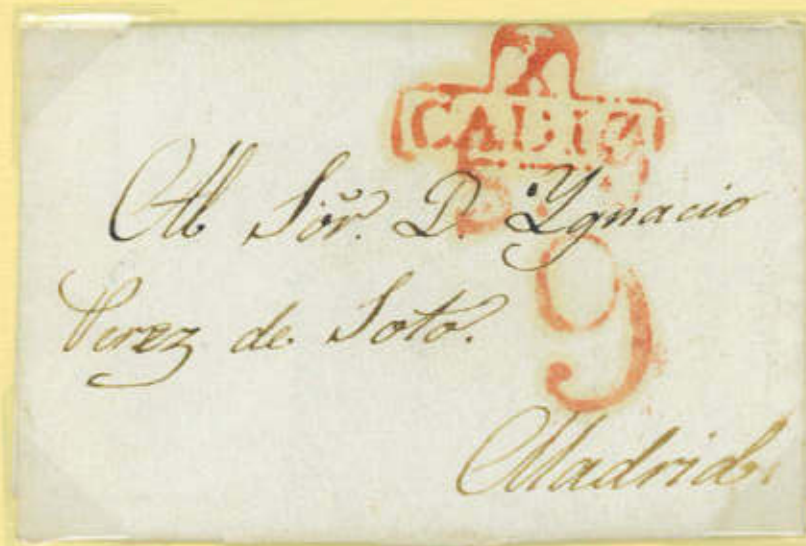 CADIZ
Al Sōr. D. Ygnacio
Perez de Soto.
9
Madrid.